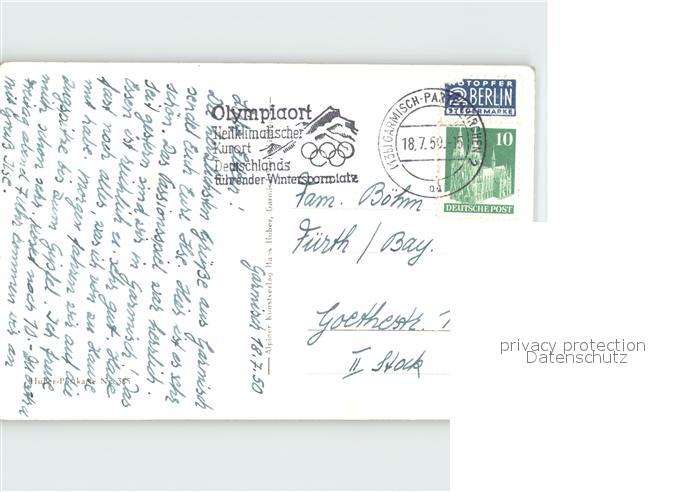 Garmisch 18.7.50
Ihr Lieben!
Die herzlichsten Grüße aus Garmisch
sendet Euch Eure Ilse. Hier ist es sehr
schön. Das Passionsspiel war herrlich.
Seit gestern sind wir in Garmisch. Das
Essen ist wirklich sehr gut. Habe
fast noch alles, was ich von zu Hause
mit habe. Morgen fahren wir auf die
Zugspitze bis zum Gipfel. Ich freue
mich schon sehr.
abend 7 Uhr kommen wir an
mit Gruß Ilse
Huber-Postkarte Nr. 385
Alpiner Kunstverlag Hans Huber, Garmisch
Olympiaort
Heilklimatischer
Kurort
Deutschlands
führender Wintersportplatz
(13b) GARMISCH-PARTENKIRCHEN 2
18.7.50.-15
ad
NOTOPFER
2 BERLIN
STEUERMARKE
10
DEUTSCHE POST
Fam. Böhm
Fürth / Bay.
Goethestr. 1
II Stock
privacy protection
Datenschutz